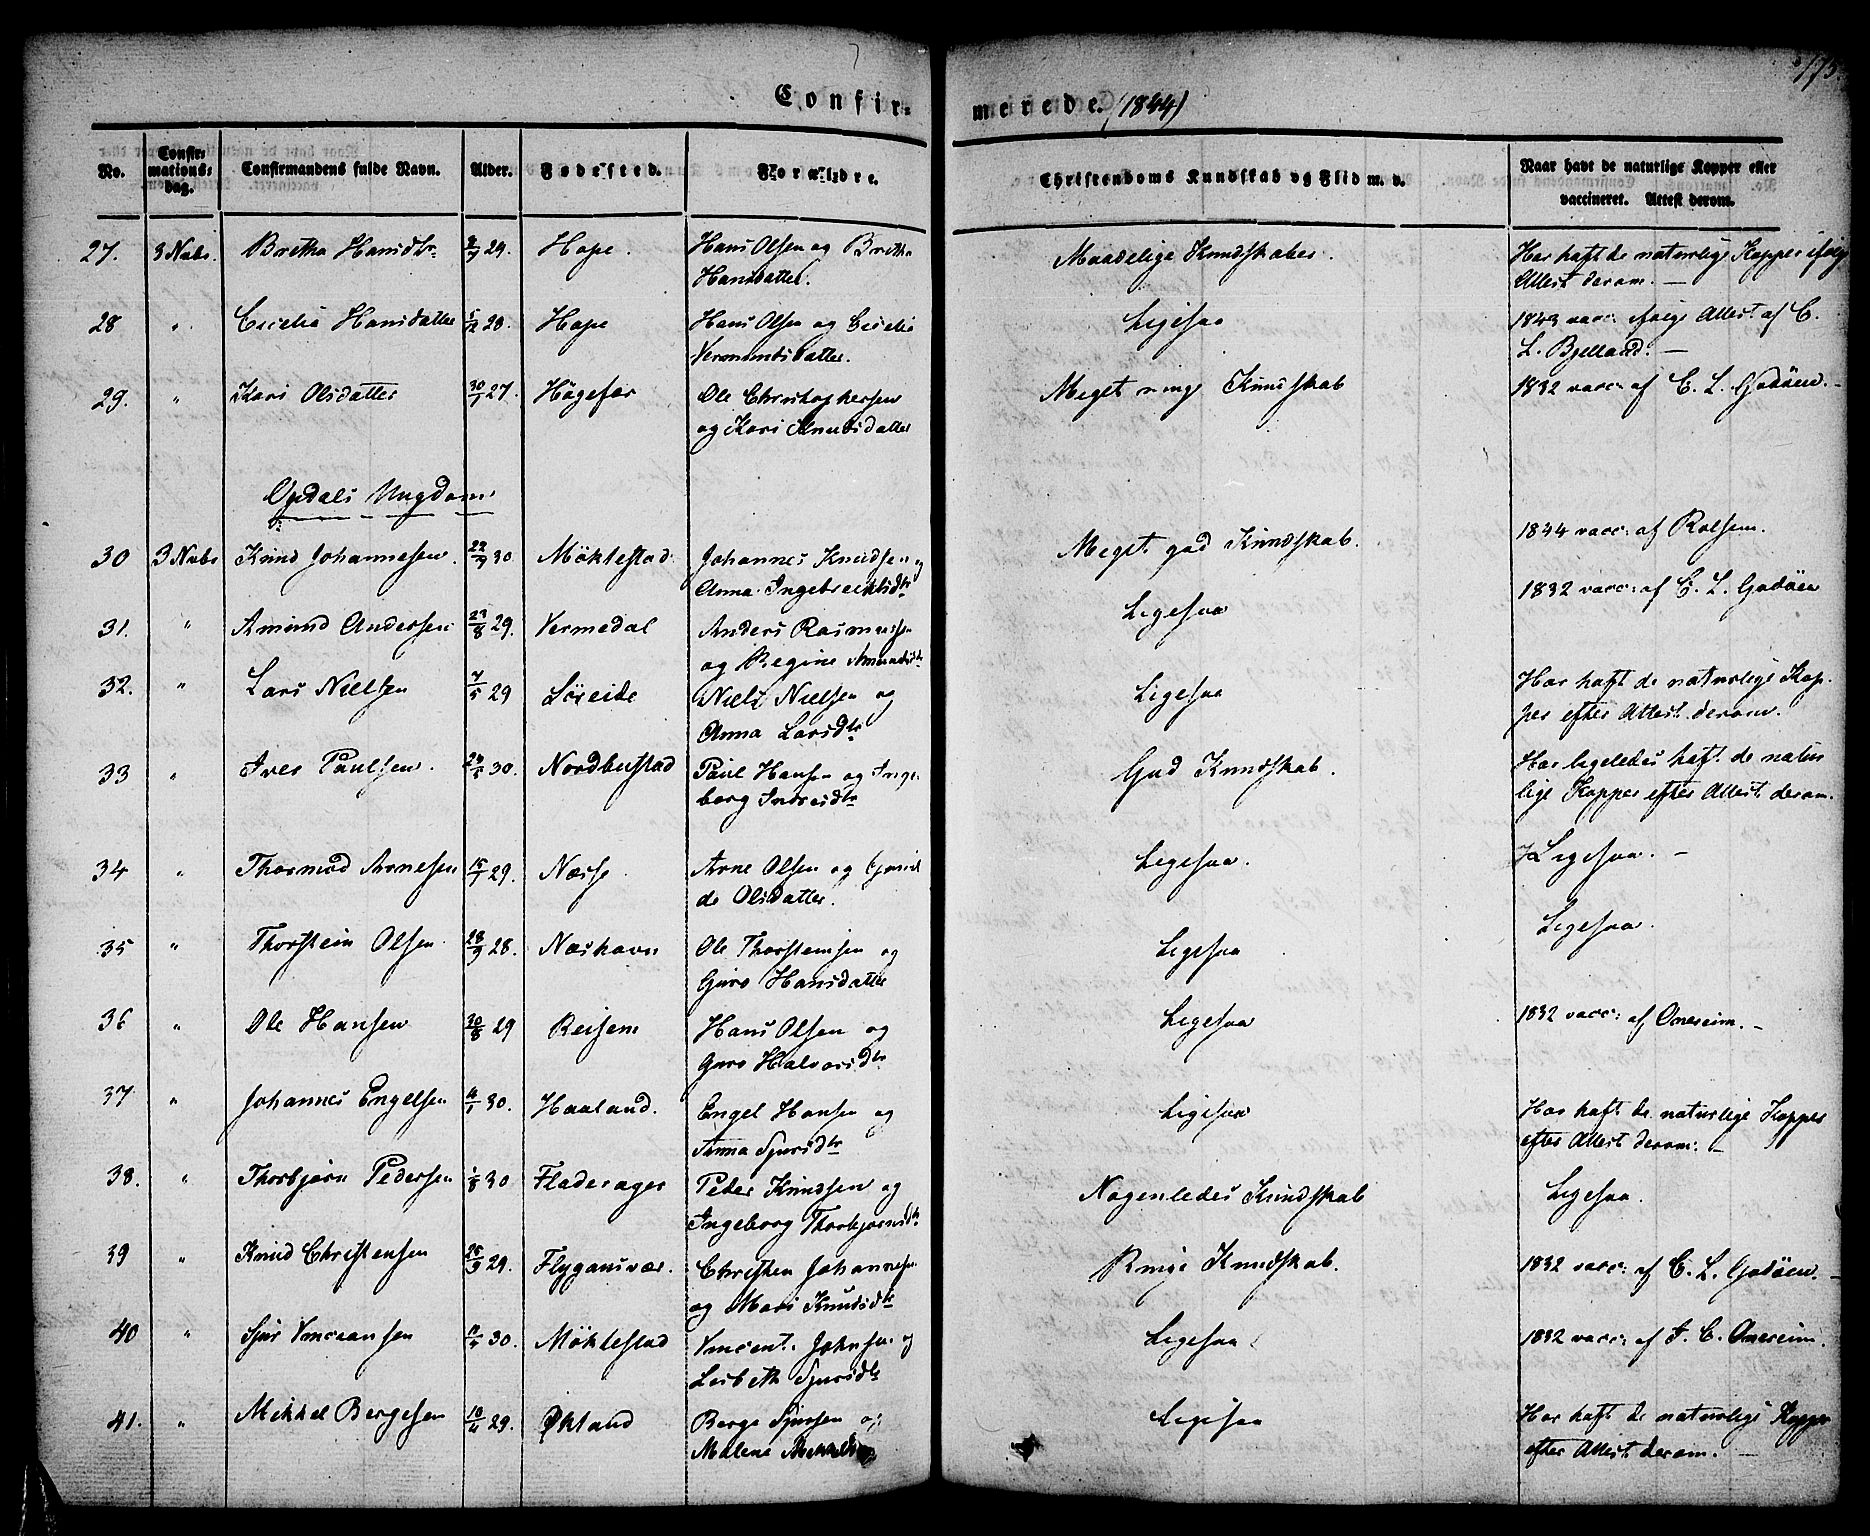 175.
Confir-
merede. (1844)
No.
Confir-
mations-
dag.
Confirmandens fulde Navn.
Alder.
Fødested.
Forældre.
Christendoms Kundskab og Flid m. v.
Naar havt de naturlige Kopper eller
vaccineret. Attest derom.
27. 3 Nvbr. Bretha Hansdtr 29. Hope. Hans Olsen og Bretha Maadelige Kundskaber. Har haft de naturlige Kopper ifølg
Hansdatter. Attest derom. —
28 " Cicelia Hansdatter 28. Hope Hans Olsen og Cicelia Ligesaa 1843 vacc: ifølge Attest af C.
Vermundsdatter. L. Bjelland. —
29. " Kari Olsdatter 30/1 27. Høgefær Ole Christophersen Meget ringe Kundskab 1832 vacc: af C. L. Godøen. —
og Kari Knudsdatter
Opdals Ungdom
30 3 Nvbr Knud Johannesen 22/9 30 Møklestad. Johannes Knudsen og Meget god Kundskab. 1844 vacc: af Rolfsen.
Anna Ingebrechtsdtr
31. " Amund Andersen 23/8 29. Vermedal Anders Rasmussen Ligesaa 1832 vacc: af C. L. Godøen
og Regine Amundsdtr
32. " Lars Nielsen 7/5 29 Løreide Niels Nielsen og Ligesaa Har haft de naturlige Kop-
Anna Larsdtr per efter Attest derom.
33 " Iver Paulsen. 24/5 30. Nordbustad Paul Hansen og Inge God Kundskab. Har ligeledes haft de natur
borg Indresdtr lige Kopper efter Attest derom.
34 " Thormod Arnesen 15/7 29. Næsse Arne Olsen og Gunil Ligesaa. Ligesaa. —
de Olsdatter.
35 " Thorstein Olsen 28/9 28. Næshavn Ole Thorsteinsen og Ligesaa Ligesaa.
Guro Hansdatter
36 " Ole Hansen 30/8 29 Reisem Hans Olsen og Ligesaa 1832 vacc: af Onereim. —
Guro Halvorsdtr
37. " Johannes Engelsen 30. Haaland. Engel Hansen og Ligesaa Har haft de naturlige Kopper
Anna Sjursdtr efter Attest derom: —
38. " Thorbjørn Pedersen 1/8 30 Fladerager Peder Knudsen og Nogenledes Kundskab Ligesaa.
Ingeborg Thorbjørnsdtr
39 " Knud Christensen 25/9 29. Flygansvær. Christen Johannesen Ringe Kundskab. 1832 vacc: af C. L. Godøen. —
og Mari Knudsdtr
40 " Sjur Vincensen 30. Møklestad Vincent Johnsen og Ligesaa 1832 vacc: af J. C. Onereim.
Lisbeth Sjursdtr
41. " Mikkel Bergesen 10/4 29. Økland Berge Sjursen og Ligesaa Har haft de naturlige Kopper
Malene efter Attest derom. —